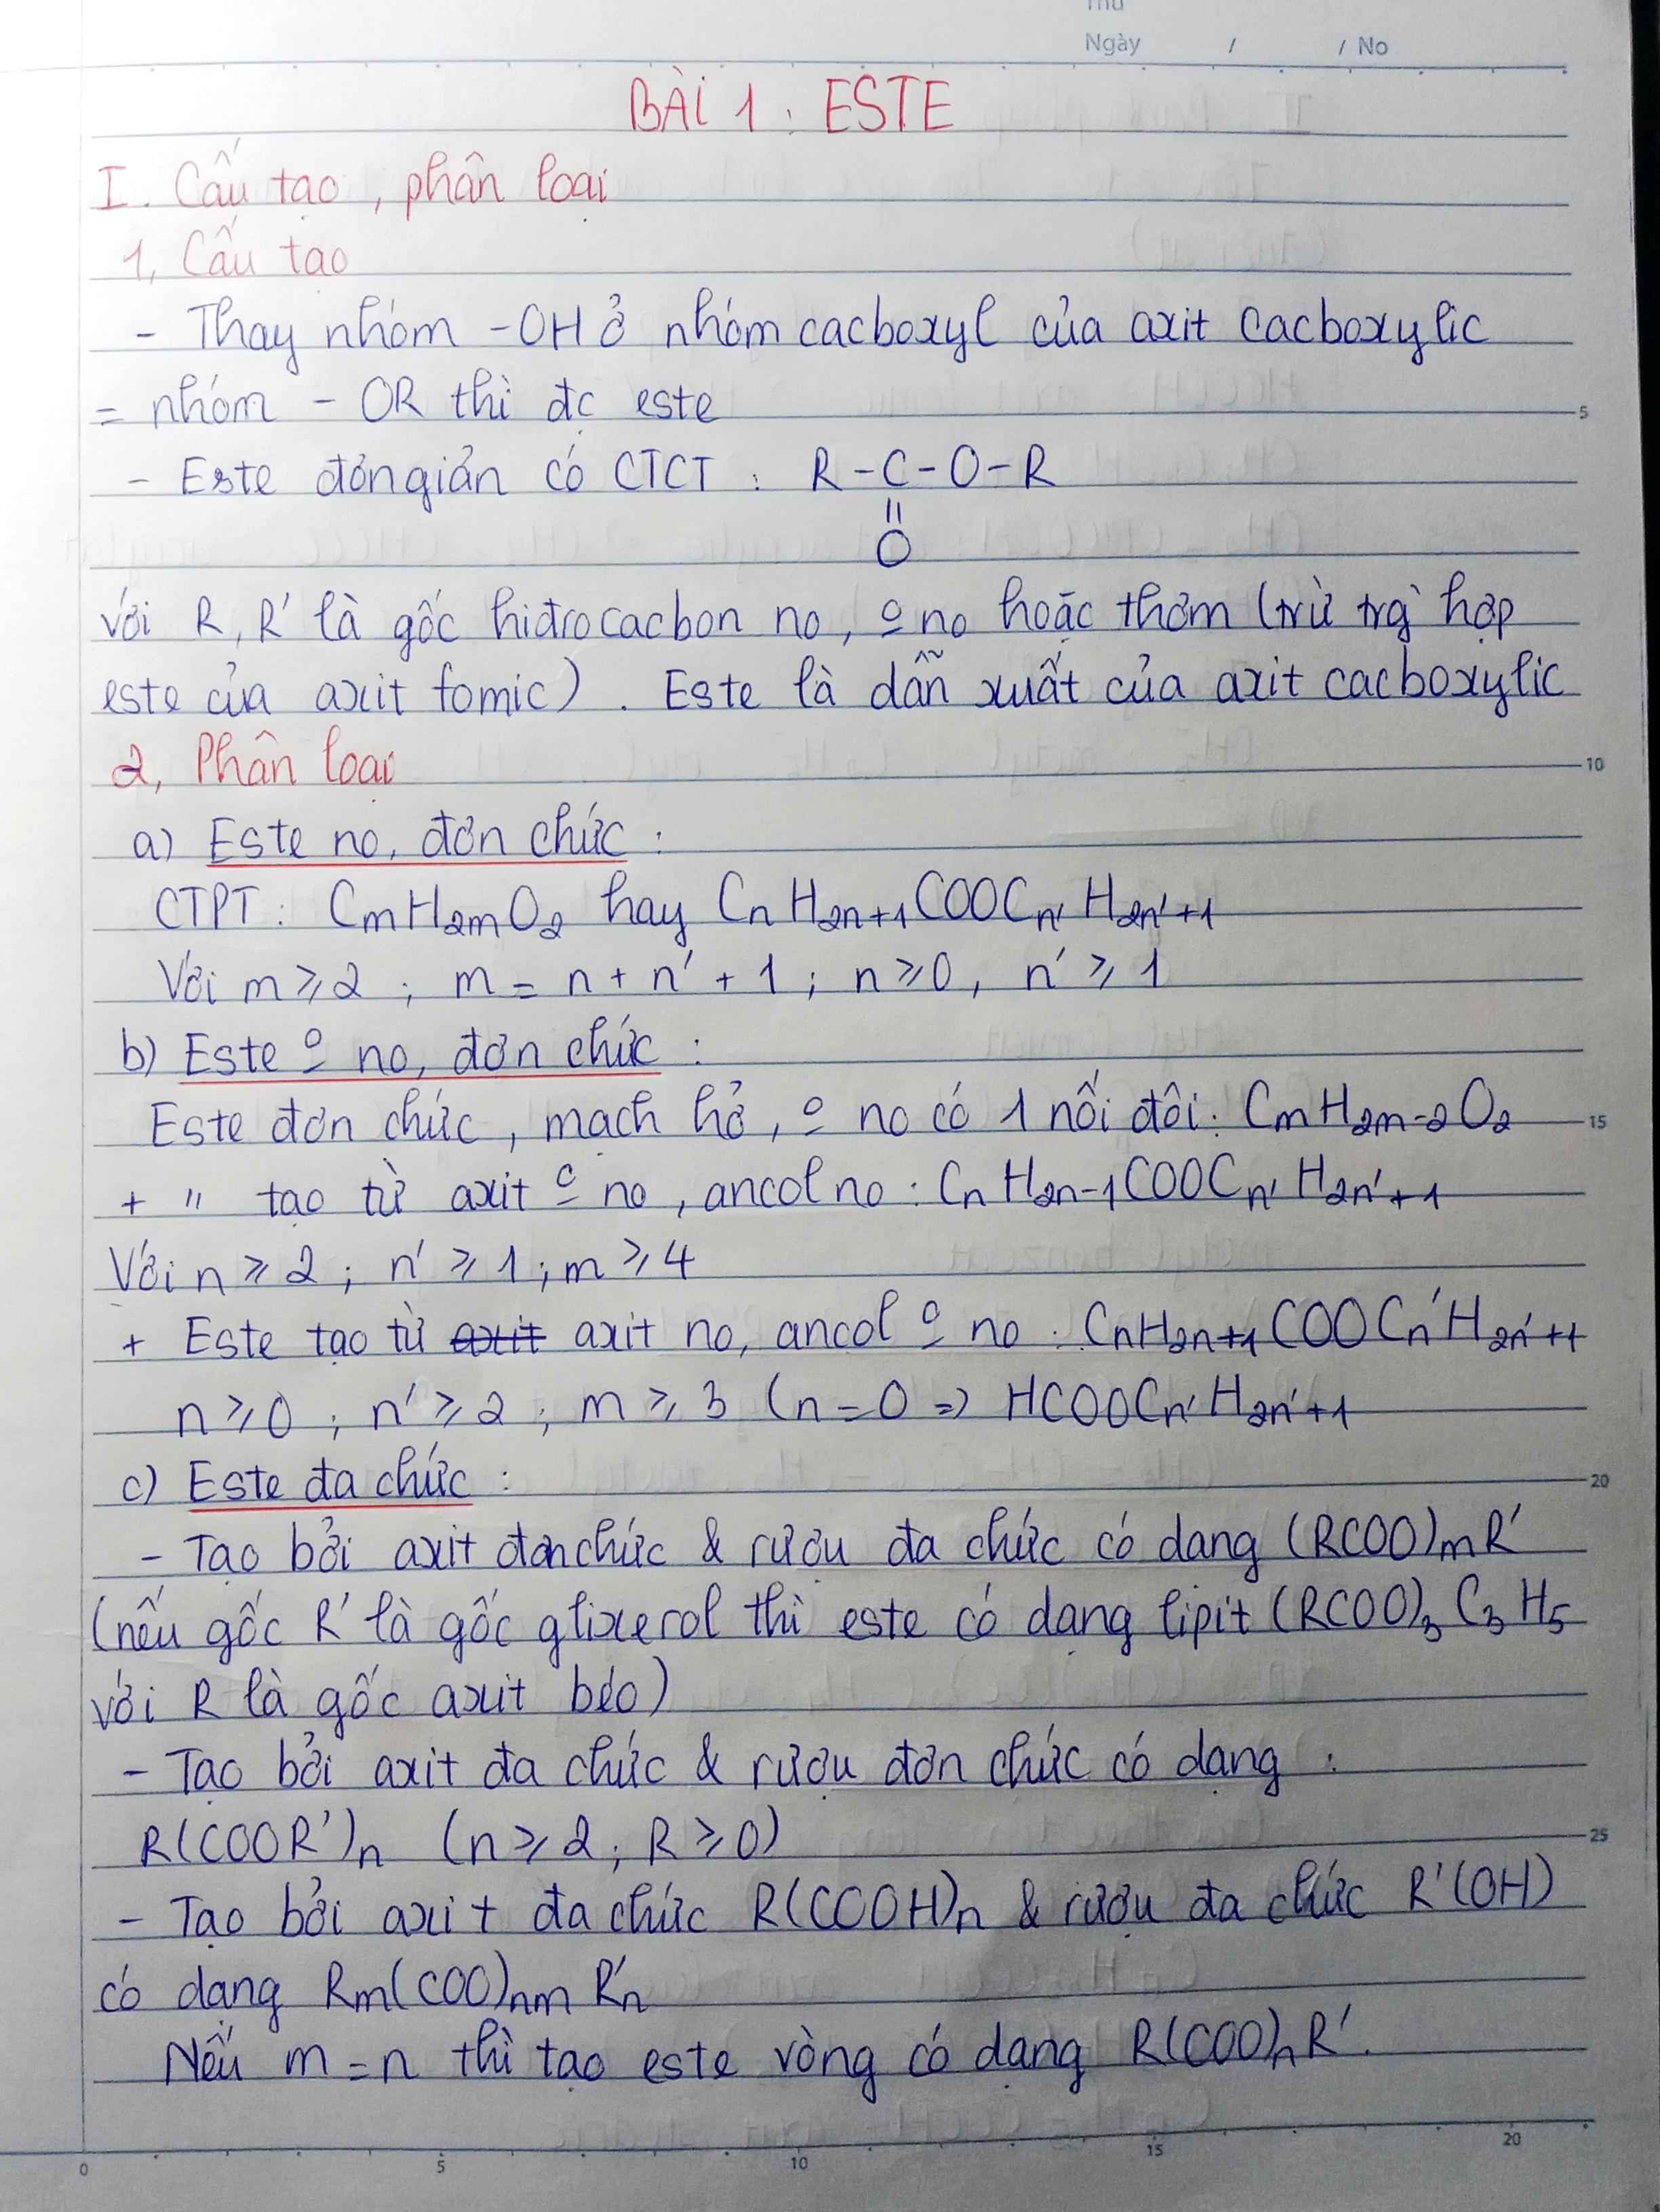 Thứ
Ngày / / No
BÀI 1 : ESTE
I. Cấu tạo, phân loại
1, Cấu tạo
- Thay nhóm -OH ở nhóm cacboxyl của axit cacboxylic
= nhóm - OR thì đc este
- Este đơn giản có CTCT : R-C-O-R
||
O
với R, R' là gốc hiđrocacbon no, º no hoặc thơm (trừ trg` hợp
este của axit fomic). Este là dẫn xuất của axit cacboxylic
2, Phân loại
10
a) Este no, đơn chức :
CTPT : CmH2mO2 hay CnH2n+1COOCn'H2n'+1
Với m ⩾ 2 ; m = n + n' + 1 ; n ⩾ 0, n' ⩾ 1
b) Este º no, đơn chức :
Este đơn chức, mạch hở, º no có 1 nối đôi : CmH2m-2O2
15
+ " tạo từ axit º no, ancol no : CnH2n-1COOCn'H2n'+1
Với n ⩾ 2 ; n' ⩾ 1 ; m ⩾ 4
+ Este tạo từ axit axit no, ancol º no : CnH2n+1COOCn'H2n'+1
n ⩾ 0 ; n' ⩾ 2 ; m ⩾ 3 (n = 0 => HCOOCn'H2n'+1
c) Este đa chức :
20
- Tạo bởi axit đơn chức & rượu đa chức có dạng (RCOO)mR'
(nếu gốc R' là gốc glixerol thì este có dạng lipit (RCOO)3C3H5
với R là gốc axit béo)
- Tạo bởi axit đa chức & rượu đơn chức có dạng :
R(COOR')n (n ⩾ 2 ; R ⩾ 0)
25
- Tạo bởi axit đa chức R(COOH)n & rượu đa chức R'(OH)
có dạng Rm(COO)nmR'n
Nếu m = n thì tạo este vòng có dạng R(COO)nR'.
0 5 10 15 20